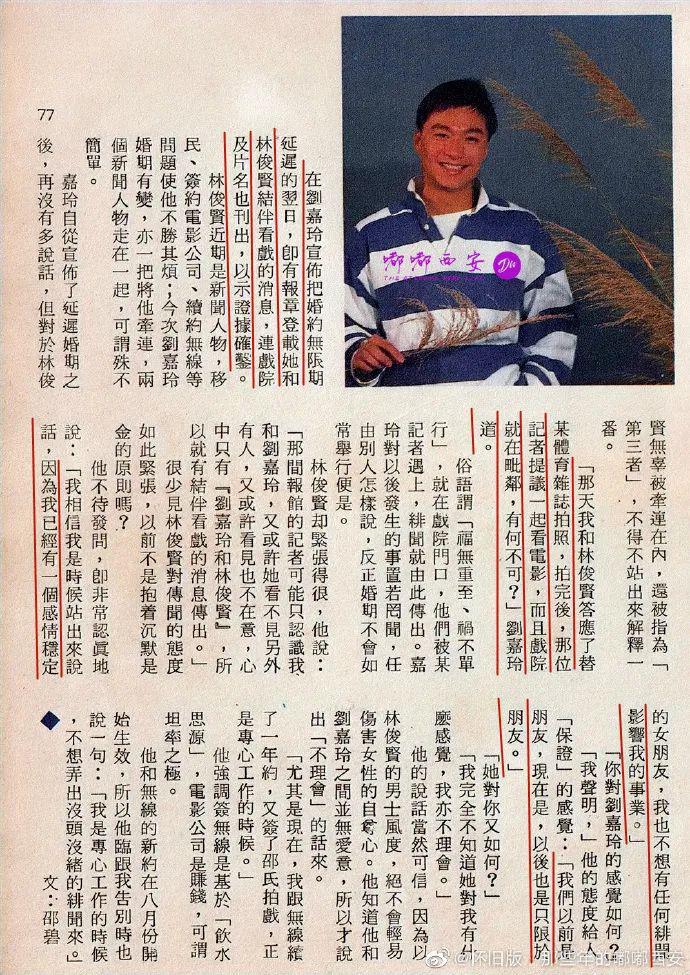 77
在劉嘉玲宣佈把婚約無限期
延遲的翌日，卽有報章登載她和
林俊賢結伴看戲的消息，連戲院
及片名也刊出，以示證據確鑿。
林俊賢近期是新聞人物，移
民、簽約電影公司、續約無線等
問題使他不勝其煩；今次劉嘉玲
婚期有變，亦一把將他牽連，兩
個新聞人物走在一起，可謂殊不
簡單。
嘉玲自從宣佈了延遲婚期之
後，再沒有多說話，但對於林俊
嘟嘟西安
Du
賢無辜被牽連在內，還被指為「
第三者」，不得不站出來解釋一
番。
「那天我和林俊賢答應了替
某體育雜誌拍照，拍完後，那位
記者提議一起看電影，而且戲院
就在毗鄰，有何不可？」劉嘉玲
道。
俗語謂「福無重至、禍不單
行」，就在戲院門口，他們被某
記者遇上，緋聞就由此傳出。嘉
玲對以後發生的事置若罔聞，任
由別人怎樣說，反正婚期不會如
常舉行便是。
林俊賢却緊張得很，他說：
「那間報館的記者可能只認識我
和劉嘉玲，又或許她看不見另外
有人，又或許看見也不在意，心
中只有『劉嘉玲和林俊賢』，所
以就有結伴看戲的消息傳出。」
很少見林俊賢對傳聞的態度
如此緊張，以前不是抱着沉默是
金的原則嗎？
他不待發問，卽非常認眞地
說：「我相信我是時候站出來說
話，因為我已經有一個感情穩定
的女朋友，我也不想有任何緋聞
影響我的事業。」
「你對劉嘉玲的感覺如何？」
「我聲明，」他的態度給人
「保證」的感覺：「我們以前是
朋友，現在是，以後也是只限於
朋友。」
「她對你又如何？」
「我完全不知道她對我有什
麼感覺，我亦不理會。」
他的說話當然可信，因為以
林俊賢的男士風度，絕不會輕易
傷害女性的自尊心。他知道他和
劉嘉玲之間並無愛意，所以才說
出「不理會」的話來。
「尤其是現在，我跟無線續
了一年約，又簽了邵氏拍戲，正
是專心工作的時候。」
他強調簽無線是基於「飲水
思源」，電影公司是賺錢，可謂
坦率之極。
他和無線的新約在八月份開
始生效，所以他臨跟我告別時也
說一句：「我是專心工作的時候
，不想弄出沒頭沒緒的緋聞來。」
文：邵碧